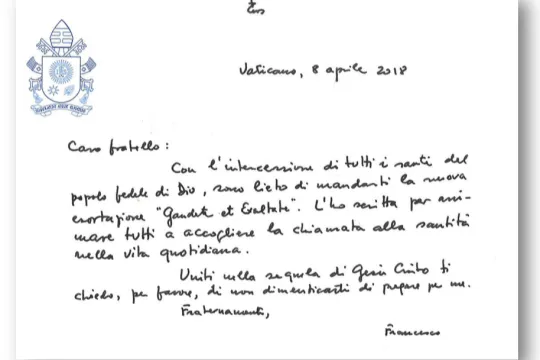 Vaticano, 8 aprile 2018
Caro fratello:
Con l'intercessione di tutti i santi del
popolo fedele di Dio, sono lieto di mandarti la nuova
esortazione "Gaudete et Exultate". L'ho scritta per ani-
mare tutti a accogliere la chiamata alla santità
nella vita quotidiana.
Uniti nella sequela di Gesù Cristo ti
chiedo, per favore, di non dimenticarti di pregare per me.
Fraternamente,
Francesco